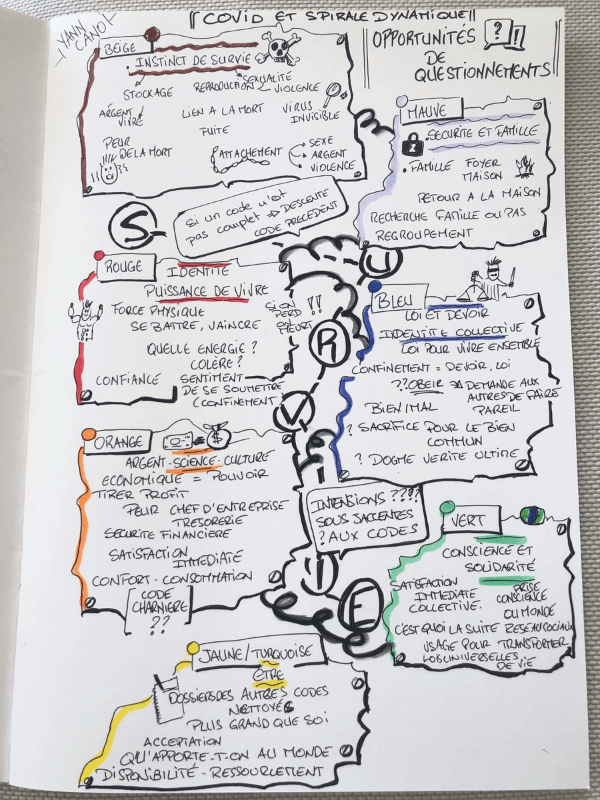 YANN CANO
COVID ET SPIRALE DYNAMIQUE
OPPORTUNITÉS
DE
QUESTIONNEMENTS
? !
BEIGE
• INSTINCT DE SURVIE
STOCKAGE
REPRODUCTION
SEXUALITÉ
VIOLENCE
ARGENT
VIVRE
LIEN A LA MORT
VIRUS
INVISIBLE
FUITE
PEUR
DE LA MORT
ATTACHEMENT
SEXE
ARGENT
VIOLENCE
MAUVE
SECURITE ET FAMILLE
• FAMILLE FOYER
MAISON
RETOUR A LA MAISON
RECHERCHE FAMILLE OU PAS
REGROUPEMENT
SI UN CODE N'EST
PAS COMPLET => DESCENTE
CODE PRECEDENT
S
U
R
V
I
E
ROUGE
IDENTITÉ
PUISSANCE DE VIVRE
FORCE PHYSIQUE
SE BATTRE, VAINCRE
SI ON
PERD
ON
MEURT
!!
QUELLE ENERGIE ?
COLÈRE ?
CONFIANCE
SENTIMENT
DE SE SOUMETTRE
(CONFINEMENT
BLEU
LOI ET DEVOIR
IDENTITE COLLECTIVE
LOI POUR VIVRE ENSEMBLE
CONFINEMENT = DEVOIR, LOI
?? OBEIR => DEMANDE AUX
AUTRES DE FAIRE
PAREIL
BIEN/MAL
? SACRIFICE POUR LE BIEN
COMMUN
? DOGME VERITE ULTIME
ORANGE
ARGENT • SCIENCE • CULTURE
ECONOMIQUE = POUVOIR
TIRER PROFIT
PEUR CHEF D'ENTREPRISE
TRESORERIE
SECURITE FINANCIERE
SATISFACTION
IMMEDIATE
CONFORT • CONSOMMATION
CODE
CHARNIERE
??
INTENSIONS ????
SOUS JACENTES
? AUX CODES
VERT
CONSCIENCE ET
SOLIDARITÉ
SATISFACTION
IMMEDIATE
COLLECTIVE.
PRISE
CONSCIENCE
DU MONDE
C'EST QUOI LA SUITE RESEAU SOCIAUX
USAGE POUR TRANSFORMER
LOIS UNIVERSELLES
DE VIE
JAUNE/TURQUOISE
ÊTRE
DOSSIERS DES AUTRES CODES
NETTOYÉS
PLUS GRAND QUE SOI
ACCEPTATION
QU'APPORTE-T-ON AU MONDE
DISPONIBILITÉ - RESSOURCEMENT